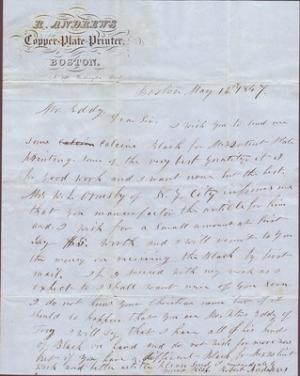 R. ANDREWS
Copper-Plate-Printer,
BOSTON.
Boston May 12th 1847
Mr. Eddy
Dear Sir, I wish you to send me
some Calcine Black for Plate
Printing some of the very best quality it is
for good work and I want none but the best,
Mr. W. L. Ormsby of N. Y. City informes me
that you manufactor the article for him
and I wish for a small amount at first
Say $5. Worth and I will remit to You
the money on receiving the Black by first
mail. If I succeed with my work as I
expect to I shall want more of you soon.
I do not know your Christian name but if it
should so happen that you are Mr. Eddy of
Troy I will say that I have all of his kinds
of Black on hand and do not wish for more
but if you have a different Black for
work and better
Robert Andrews